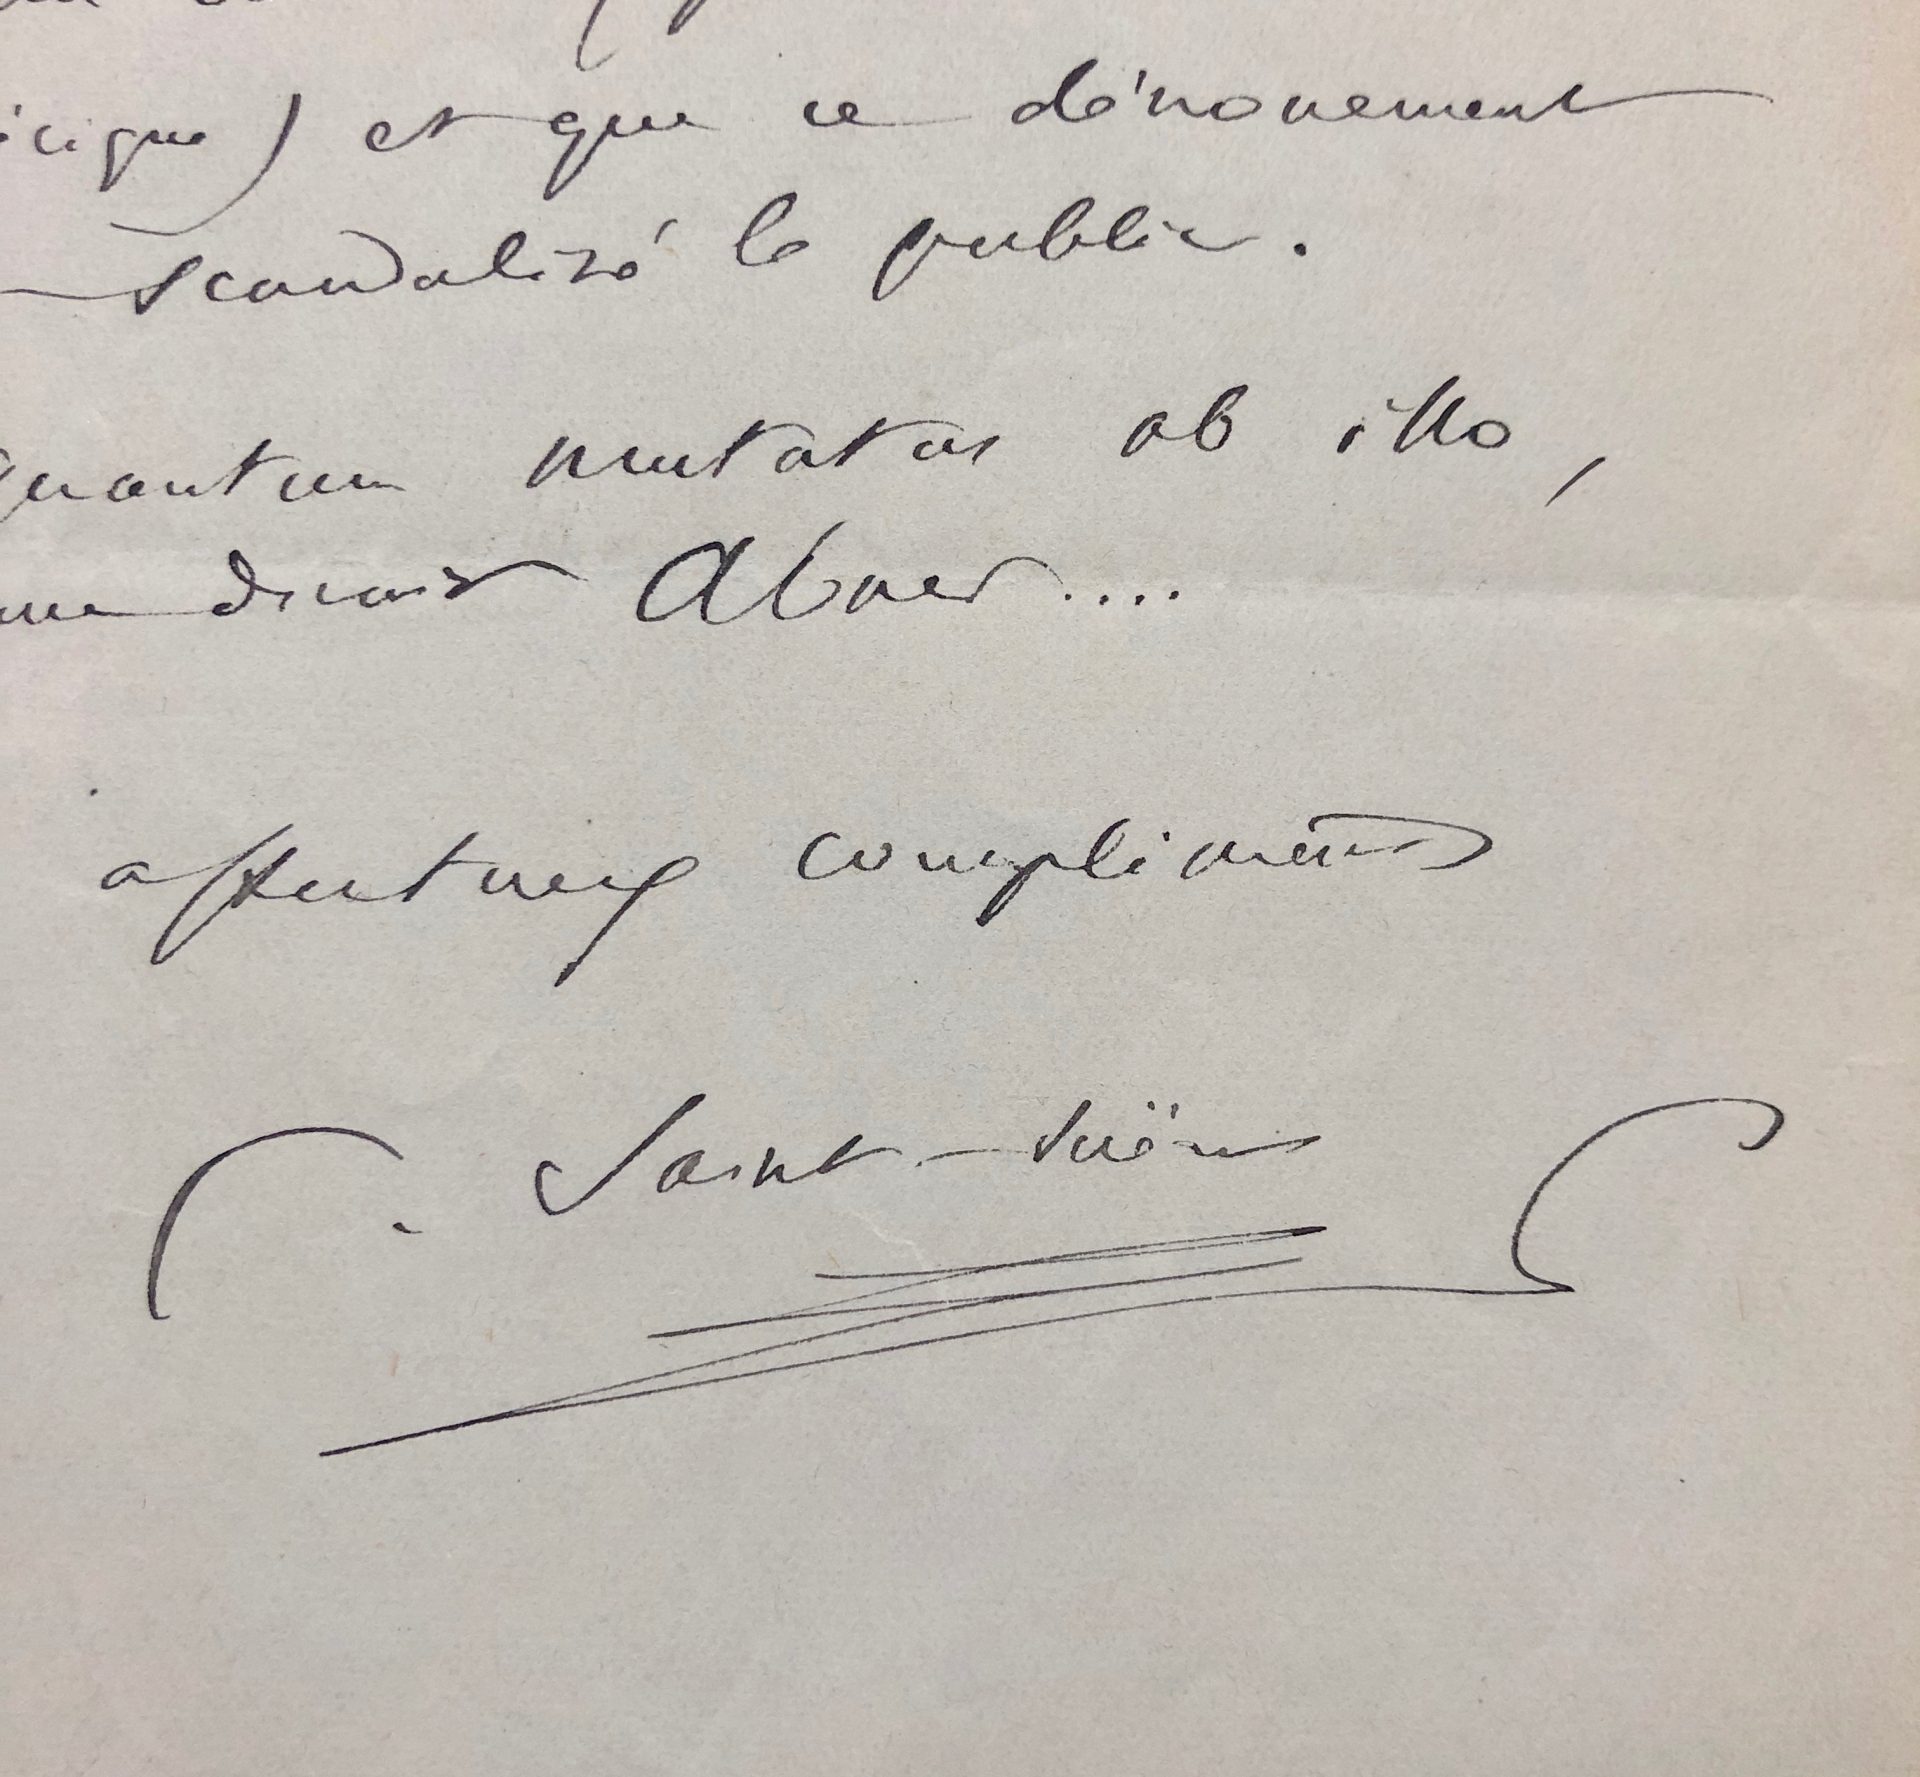 et que ce dénouement
scandalisé le public.
quantum mutatus ab illo,
disait Abner....
affectueux compliments
C. Saint-Saëns